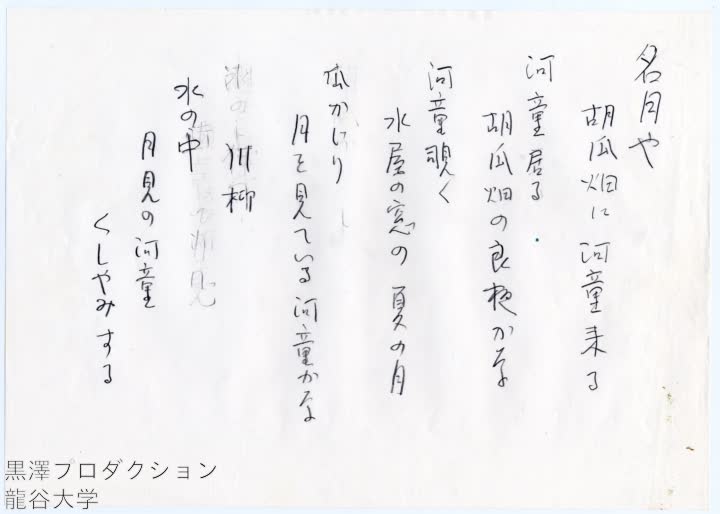 名月や
胡瓜畑に河童来る
河童居る
胡瓜畑の良夜かな
河童覗く
水屋の窓の夏の月
瓜かじり
月を見ている河童かな
川柳
水の中
月見の河童
くしやみする
黒澤プロダクション
龍谷大学